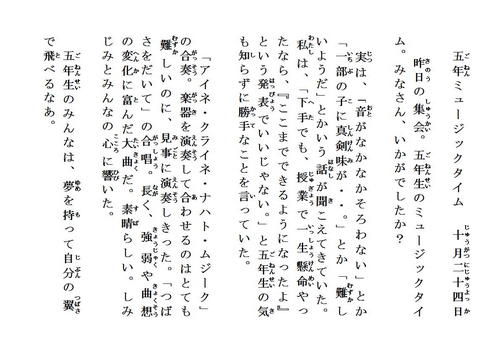 五年ミュージックタイム　十月二十四日
昨日の集会。五年生のミュージックタイ
ム。みなさん、いかがでしたか？
実は、「音がなかなかそろわない」とか
「一部の子に真剣味が・・。」とか「難し
いようだ」とかいう話が聞こえてきていた。
私は、「下手でも、授業で一生懸命やっ
たなら、『ここまでできるようになったよ』
という発表でいいじゃない。」と五年生の気
も知らずに勝手なことを言っていた。
「アイネ・クライネ・ナハト・ムジーク」
の合奏。楽器を演奏して合わせるのはとても
難しいのに、見事に演奏しきった。「つば
さをだいて」の合唱。長く、強弱や曲想
の変化に富んだ大曲だ。素晴らしい。しみ
じみとみんなの心に響いた。
五年生のみんなは、夢を持って自分の翼
で飛べるなあ。